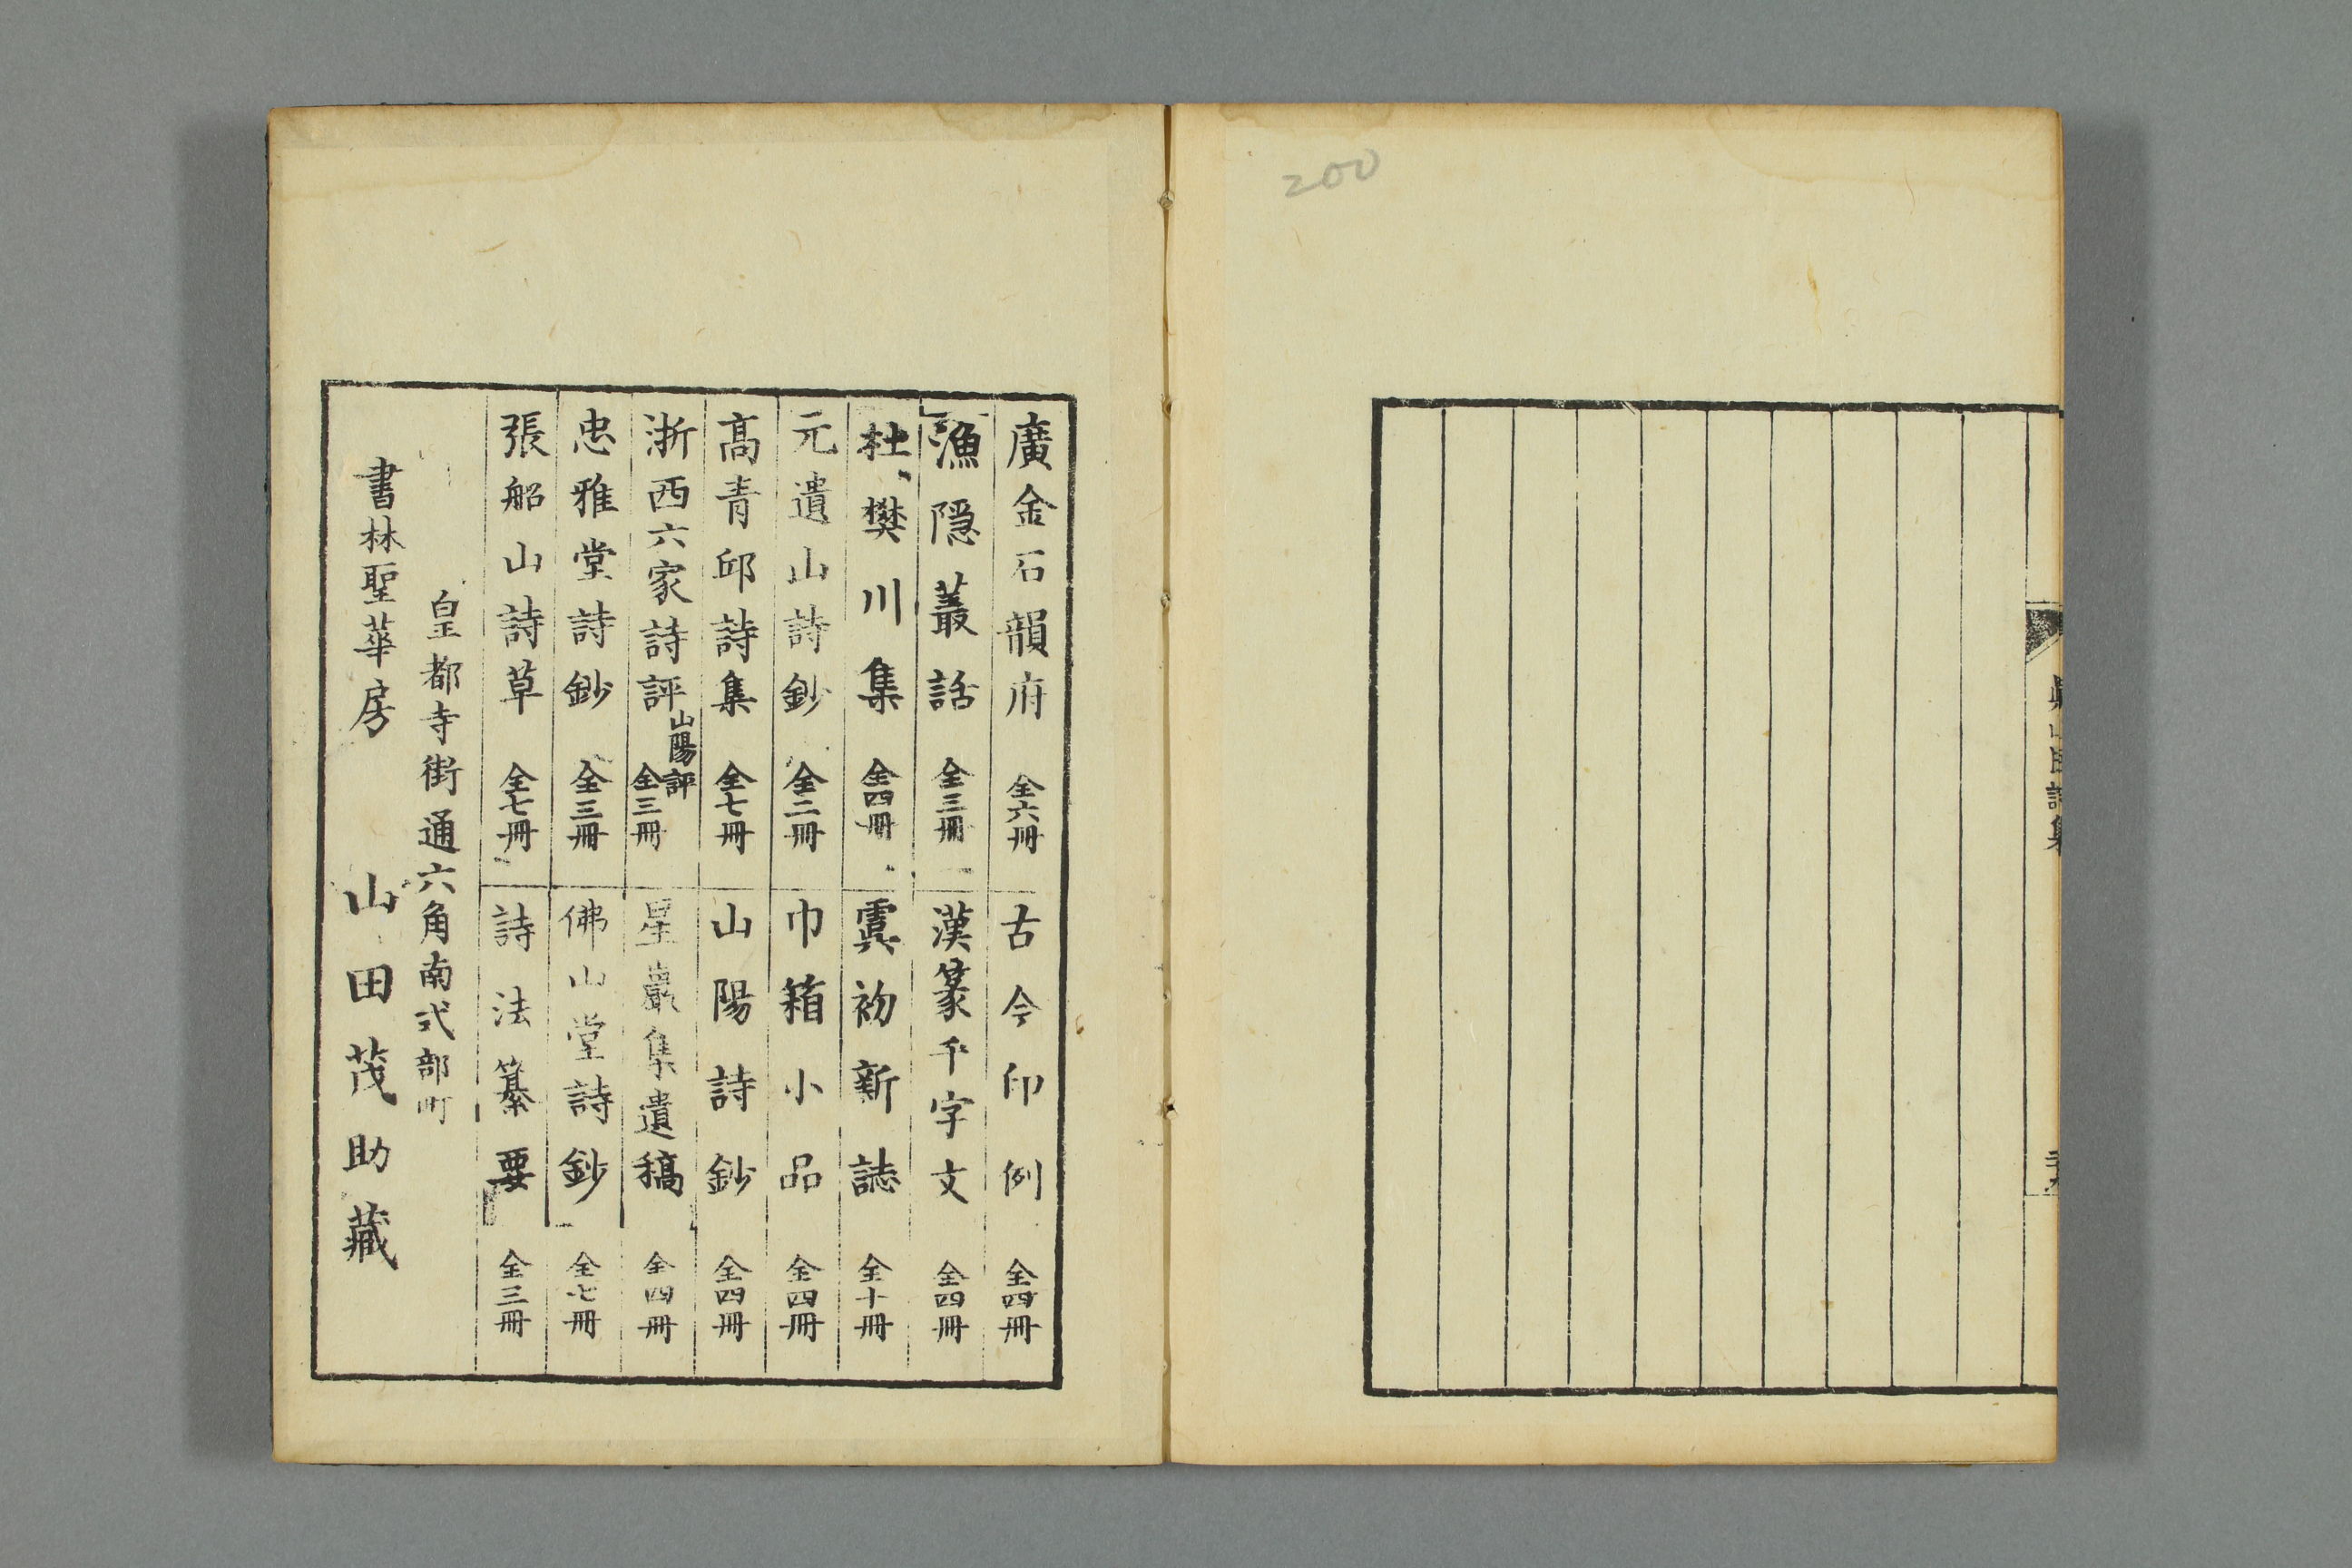 200
真山民詩集
廣金石韻府 全六冊
古今印例 全四冊
漁隠叢話 全三冊
漢篆千字文 全四冊
杜樊川集 全四冊
虞初新誌 全十冊
元遺山詩鈔 全二冊
巾箱小品 全四冊
髙青邱詩集 全七冊
山陽詩鈔 全四冊
浙西六家詩評 山陽評 全三冊
星巖集遺稿 全四冊
忠雅堂詩鈔 全三冊
佛山堂詩鈔 全七冊
張船山詩草 全七冊
詩法纂要 全三冊
皇都寺街通六角南式部町
書林聖華房 山田茂助藏